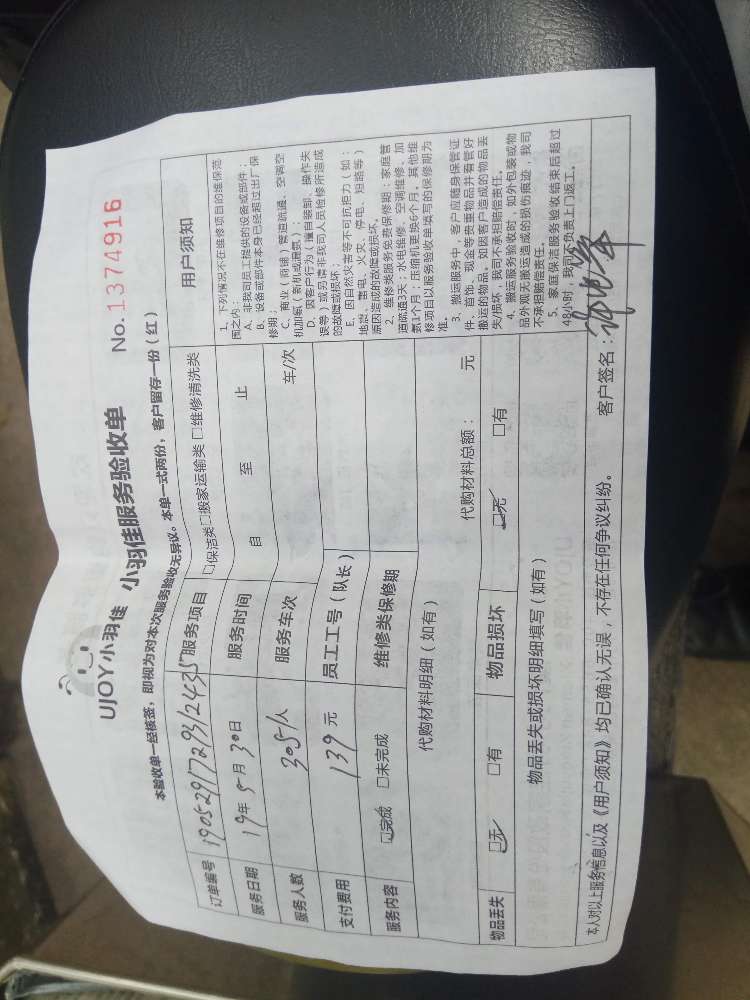 UJOY小羽佳 小羽佳服务验收单 No.1374916
本验收单一经核签，即视为对本次服务验收无异议。本单一式两份，客户留存一份（红）
订单编号 1905291729312435 服务项目 □保洁类□搬家运输类 □维修清洗类
服务日期 19年5月30日 服务时间 自 至 止
服务人数 人 服务车次 车/次
支付费用 139元 员工工号（队长）
服务内容 ☑完成 □未完成 维修类保修期
代购材料明细（如有） 代购材料总额： 元
物品丢失 ☑无 □有 物品损坏 ☑无 □有
物品丢失或损坏明细填写（如有）
用户须知
1、下列情况不在维修项目的维保范
围之内：
A、非我司员工提供的设备或部件；
B、设备或部件本身已经超过出厂保
修期；
C、商业（商铺）管道疏通、空调空
机加氟（新机或漏氟）；
D、因客户行为（擅自装卸、操作失
误等）或另请非我司人员检修所造成
的故障或损坏；
E、因自然灾害等不可抗拒力（如：
地震、雷电、火灾、停电、短路等）
原因造成的故障或损坏。
2、维修类服务免费保修期：家庭管
道疏通3天；水电维修、空调维修、加
氟1个月；压缩机更换6个月。其他维
修项目以服务验收单填写的保修期为
准。
3、搬运服务中，客户应随身保管证
件、首饰、现金等贵重物品并看管好
搬运的物品。如因客户造成的物品丢
失/损坏，我司不承担赔偿责任。
4、搬运服务验收时，如外包装或物
品外观无搬运造成的损伤痕迹，我司
不承担赔偿责任。
5、家庭保洁服务验收结束后超过
48小时，我司不负责上门返工。
本人对以上服务信息以及《用户须知》均已确认无误，不存在任何争议纠纷。 客户签名：